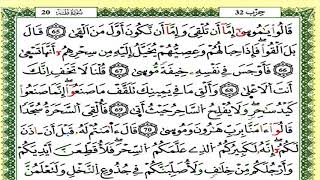 20 سُورَةُ طَهَ حِزْب 32
قَالُواْ يَٰمُوسَىٰٓ إِمَّآ أَن تُلْقِيَ وَإِمَّآ أَن نَّكُونَ أَوَّلَ مَنْ أَلْقَىٰ 65 قَالَ
بَلْ أَلْقُواْ فَإِذَا حِبَالُهُمْ وَعِصِيُّهُمْ يُخَيَّلُ إِلَيْهِ مِن سِحْرِهِمْ أَنَّهَا تَسْعَىٰ
66 فَأَوْجَسَ فِي نَفْسِهِ خِيفَةً مُّوسَىٰ 67 قُلْنَا لَا تَخَفْ إِنَّكَ
أَنتَ ٱلْأَعْلَىٰ 68 وَأَلْقِ مَا فِي يَمِينِكَ تَلَقَّفْ مَا صَنَعُوٓاْ إِنَّمَا صَنَعُواْ
كَيْدُ سَٰحِرٍ وَلَا يُفْلِحُ ٱلسَّاحِرُ حَيْثُ أَتَىٰ 69 فَأُلْقِيَ ٱلسَّحَرَةُ سُجَّدًا
قَالُوٓاْ ءَامَنَّا بِرَبِّ هَٰرُونَ وَمُوسَىٰ 70 قَالَ ءَامَنتُمْ لَهُ قَبْلَ أَنْ ءَاذَنَ
لَكُمْ إِنَّهُ لَكَبِيرُكُمُ ٱلَّذِي عَلَّمَكُمُ ٱلسِّحْرَ فَلَأُقَطِّعَنَّ أَيْدِيَكُمْ
وَأَرْجُلَكُم مِّنْ خِلَٰفٍ وَلَأُصَلِّبَنَّكُمْ فِي جُذُوعِ ٱلنَّخْلِ وَلَتَعْلَمُنَّ